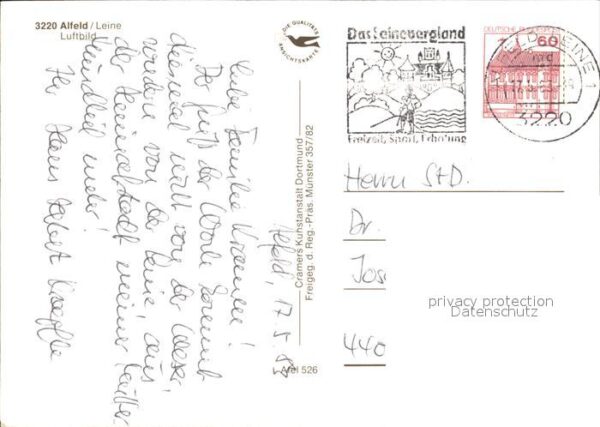 3220 Alfeld / Leine
Luftbild
DIE QUALITÄTS
ANSICHTSKARTE
Das Leinebergland
Freizeit, Sport, Erholung
DEUTSCHE BUNDESPOST
60
ALFELD, LEINE 1
3220
Alfeld, 17. 5. 83
Liebe Familie
Der Gruß der Woche kommt
diesmal nicht von der Weser,
sondern von der Leine, aus
der Heimatstadt meiner Mutter
Ihr
Cramers Kunstanstalt Dortmund
Freigeg. d. Reg.-Präs. Münster 357/82
Afel 526
Herrn StD.
Dr.
Jos
440
privacy protection
Datenschutz